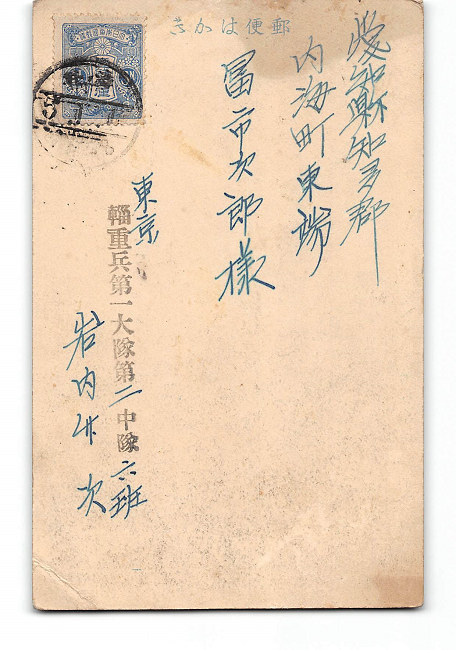 郵便はかき
愛知縣知多郡
内海町東端
冨市次郎様
東京
輜重兵第一大隊第二中隊六班
岩内 次